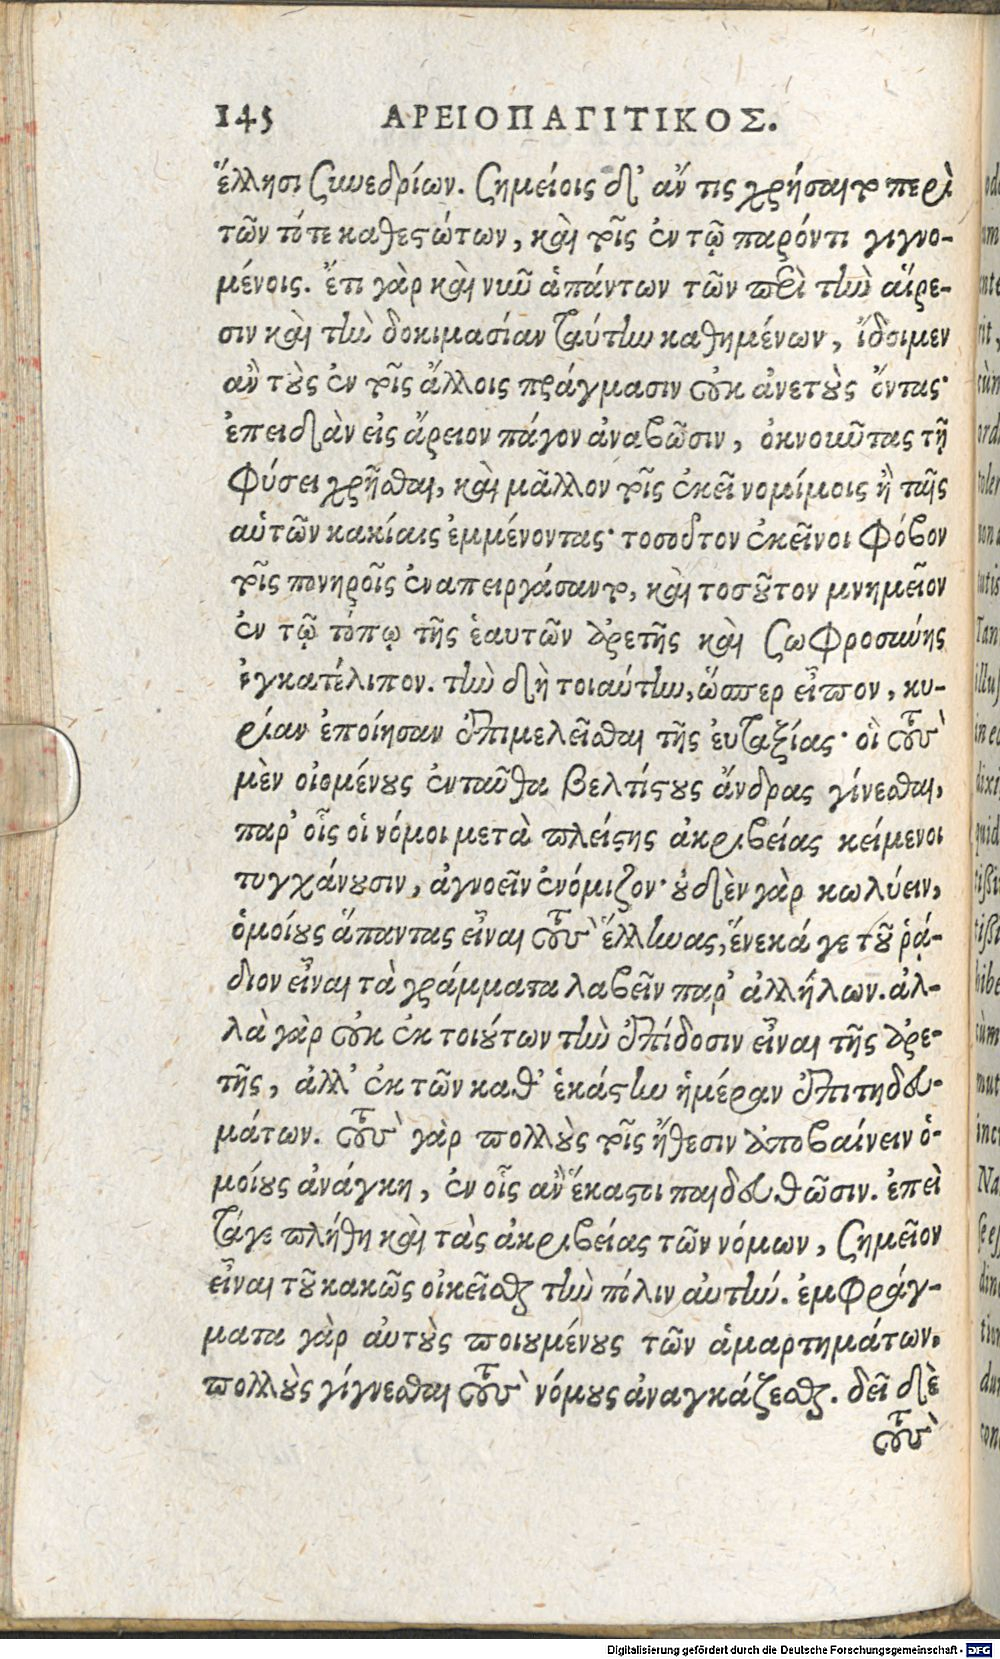 145 ΑΡΕΙΟΠΑΓΙΤΙΚΟΣ.
ἕλλησι συνεδρίων. σημείοις δ' ἄν τις χρήσαιτο περὶ
τῶν τότε καθεστώτων, καὶ τοῖς ἐν τῷ παρόντι γιγνο-
μένοις. ἔτι γὰρ καὶ νῦν ἁπάντων τῶν περὶ τὴν αἵρε-
σιν καὶ τὴν δοκιμασίαν ταύτην καθημένων, ἴδοιμεν
ἂν τοὺς ἐν τοῖς ἄλλοις πράγμασιν οὐκ ἀνετοὺς ὄντας·
ἐπειδὰν εἰς ἄρειον πάγον ἀναβῶσιν, ὀκνοῦντας τῇ
φύσει χρῆσθαι, καὶ μᾶλλον τοῖς ἐκεῖ νομίμοις ἢ ταῖς
αὑτῶν κακίαις ἐμμένοντας· τοσοῦτον ἐκεῖνοι φόβον
τοῖς πονηροῖς ἐναπειργάσαντο, καὶ τοσοῦτον μνημεῖον
ἐν τῷ τόπῳ τῆς ἑαυτῶν ἀρετῆς καὶ σωφροσύνης
ἐγκατέλιπον. τὴν δὴ τοιαύτην, ὥσπερ εἶπον, κυ-
ρίαν ἐποίησαν ἐπιμελεῖσθαι τῆς εὐταξίας· οἳ τοὺς
μὲν οἰομένους ἐνταῦθα βελτίστους ἄνδρας γίνεσθαι,
παρ' οἷς οἱ νόμοι μετὰ πλείστης ἀκριβείας κείμενοι
τυγχάνουσιν, ἀγνοεῖν ἐνόμιζον· οὐδὲν γὰρ κωλύειν,
ὁμοίους ἅπαντας εἶναι τοὺς ἕλληνας, ἕνεκά γε τοῦ ῥᾴ-
διον εἶναι τὰ γράμματα λαβεῖν παρ' ἀλλήλων. ἀλ-
λὰ γὰρ οὐκ ἐκ τοιούτων τὴν ἐπίδοσιν εἶναι τῆς ἀρε-
τῆς, ἀλλ' ἐκ τῶν καθ' ἑκάστην ἡμέραν ἐπιτηδευ-
μάτων. τοὺς γὰρ πολλοὺς τοῖς ἤθεσιν ἀποβαίνειν ὁ-
μοίους ἀνάγκη, ἐν οἷς ἂν ἕκαστοι παιδευθῶσιν. ἐπεὶ
τά γε πλήθη καὶ τὰς ἀκριβείας τῶν νόμων, σημεῖον
εἶναι τοῦ κακῶς οἰκεῖσθαι τὴν πόλιν αὐτήν. ἐμφράγ-
ματα γὰρ αὐτοὺς ποιουμένους τῶν ἁμαρτημάτων,
πολλοὺς γίγνεσθαι τοὺς νόμους ἀναγκάζεσθαι. δεῖ δὲ
τοὺς
Digitalisierung gefördert durch die Deutsche Forschungsgemeinschaft - DFG